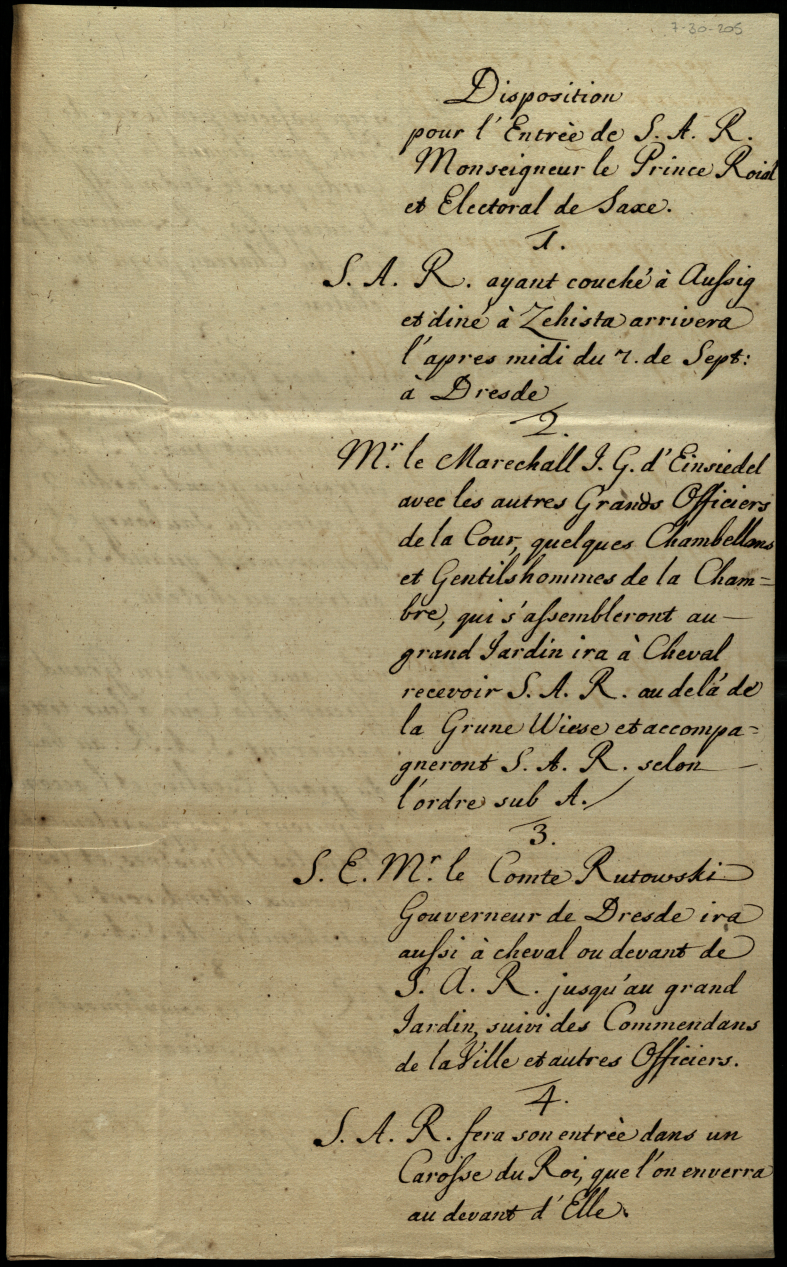 7-30-205
Disposition
pour l'Entrèe de S. A. R.
Monseigneur le Prince Roial
et Electoral de Saxe.
1.
S. A. R. ayant couché à Aussig
et diné à Zehista arrivera
l'apres midi du 7. de Sept:
à Dresde
2.
Mr. le Marechall J. G. d'Einsiedel
avec les autres Grands Officiers
de la Cour, quelques Chambellans
et Gentilshommes de la Cham=
bre, qui s'assembleront au —
grand Jardin ira à Cheval
recevoir S. A. R. au delà de
la Grune Wiese et accompa=
gneront S. A. R. selon —
l'ordre sub A./
3.
S. E. Mr. le Comte Rutowski
Gouverneur de Dresde ira
aussi à cheval ou devant de
S. A. R. jusqu'au grand
Jardin, suivi des Commendans
de la Ville et autres Officiers.
4.
S. A. R. fera son entrèe dans un
Carosse du Roi, que l'on enverra
au devant d'Elle.